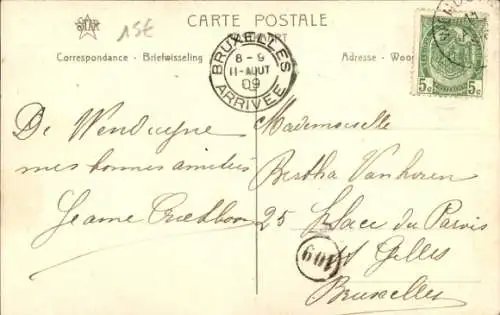 STAR
15E
CARTE POSTALE
Correspondance - Briefwisseling
Adresse -
BRUXELLES
8 - 9
11 - AOUT
09
ARRIVEE
5c 5c
De Wenduyne
mes bonnes amitiés
Jeanne
Mademoiselle
Bertha Vanhoren
25 Place du Parvis
St Gilles
Bruxelles
109